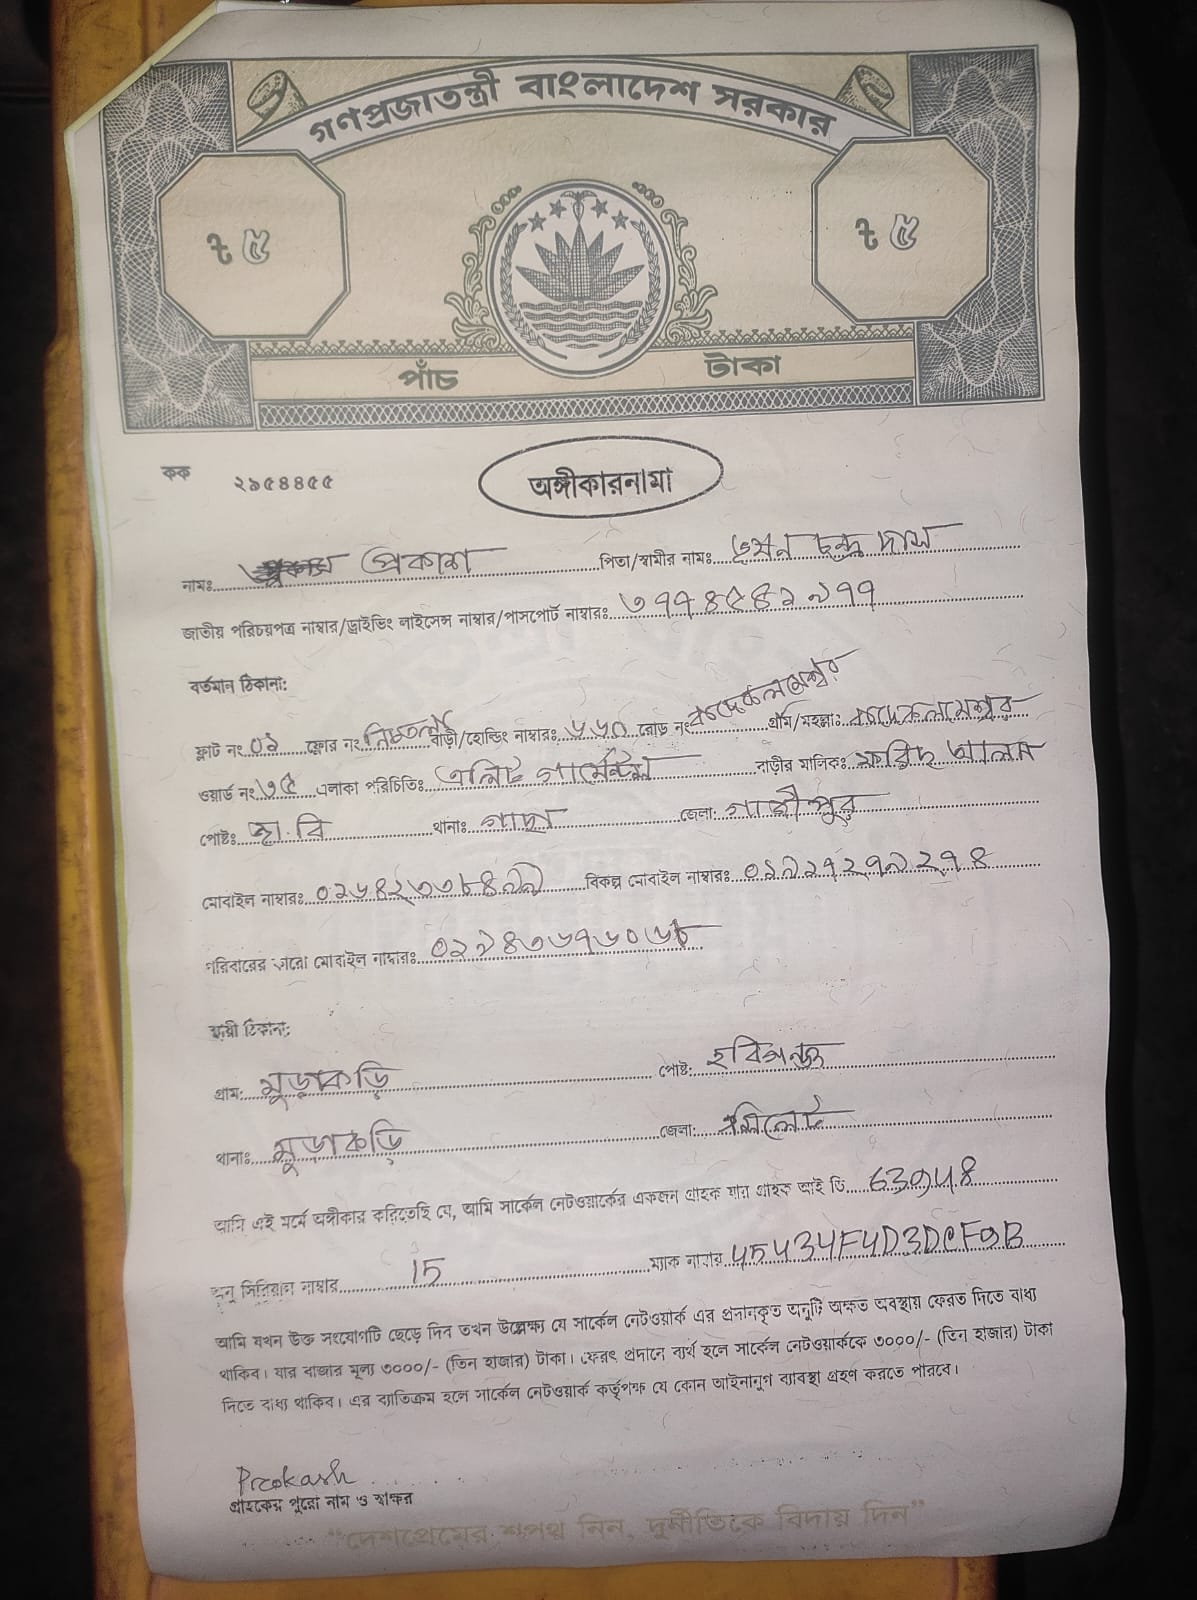 গণপ্রজাতন্ত্রী বাংলাদেশ সরকার
৳ ৫ ৳ ৫
পাঁচ টাকা
কক ২৯৫৪৪৫৫
অঙ্গীকারনামা
নামঃ প্রকাশ পিতা/স্বামীর নামঃ চন্দ্র দাস
জাতীয় পরিচয়পত্র নাম্বার/ড্রাইভিং লাইসেন্স নাম্বার/পাসপোর্ট নাম্বারঃ
বর্তমান ঠিকানা:
ফ্লাট নং ০১ ফ্লোর নং নিচতলা বাড়ী/হোল্ডিং নাম্বারঃ রোড নং গ্রাম/মহল্লাঃ
ওয়ার্ড নং ৩৫ এলাকা পরিচিতিঃ এলিট গার্মেন্টস বাড়ীর মালিকঃ ফরিদ আলম
পোষ্টঃ থানাঃ গাছা জেলা: গাজীপুর
মোবাইল নাম্বারঃ বিকল্প মোবাইল নাম্বারঃ
পরিবারের কারো মোবাইল নাম্বারঃ
স্থায়ী ঠিকানা:
গ্রাম: মুড়াকড়ি পোষ্ট: হবিগঞ্জ
থানাঃ মুড়াকড়ি জেলা: সিলেট
আমি এই মর্মে অঙ্গীকার করিতেছি যে, আমি সার্কেল নেটওয়ার্কের একজন গ্রাহক যার গ্রাহক আই ডি
অনু সিরিয়াল নাম্বার 15 ম্যাক নাম্বার
আমি যখন উক্ত সংযোগটি ছেড়ে দিব তখন উল্লেক্ষ্য যে সার্কেল নেটওয়ার্ক এর প্রদানকৃত অনুটি অক্ষত অবস্থায় ফেরত দিতে বাধ্য
থাকিব। যার বাজার মূল্য ৩০০০/- (তিন হাজার) টাকা। ফেরৎ প্রদানে ব্যর্থ হলে সার্কেল নেটওয়ার্ককে ৩০০০/- (তিন হাজার) টাকা
দিতে বাধ্য থাকিব। এর ব্যতিক্রম হলে সার্কেল নেটওয়ার্ক কর্তৃপক্ষ যে কোন আইনানুগ ব্যাবস্থা গ্রহণ করতে পারবে।
Prokash
গ্রাহকের পুরো নাম ও স্বাক্ষর
"দেশপ্রেমের শপথ নিন, দুর্নীতিকে বিদায় দিন"